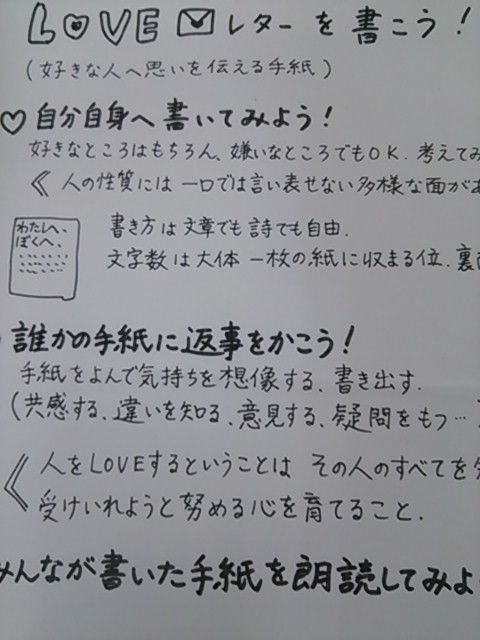 LOVE レターを書こう!
(好きな人へ思いを伝える手紙)
♡自分自身へ書いてみよう!
好きなところはもちろん、嫌いなところでもOK. 考えてみ
《人の性質には一口では言い表せない多様な面があ
わたしへ、
ぼくへ、
書き方は文章でも詩でも自由.
文字数は大体一枚の紙に収まる位.裏
誰かの手紙に返事をかこう!
手紙をよんで気持ちを想像する、書き出す.
(共感する、違いを知る、意見する、疑問をもつ…)
《人をLOVEするということは その人のすべてを
受けいれようと努める心を育てること.
みんなが書いた手紙を朗読してみよ